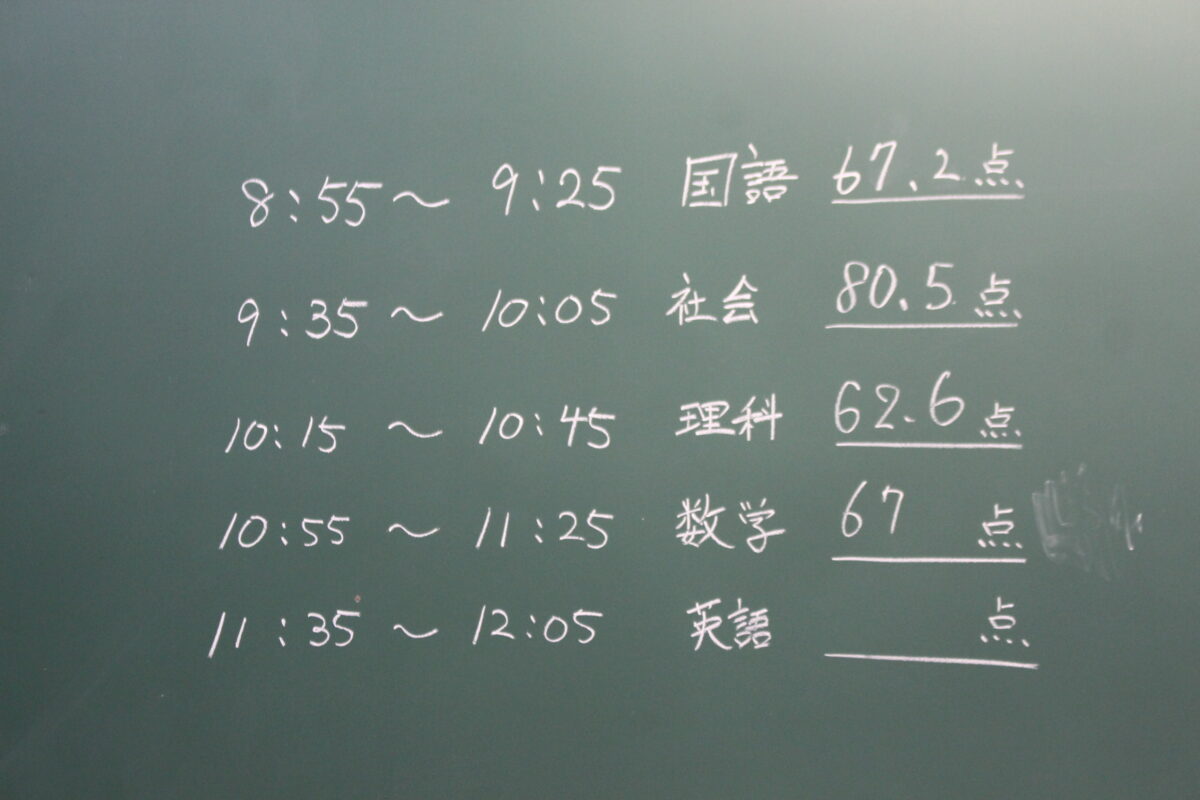 8:55～9:25 国語 67.2点
9:35～10:05 社会 80.5点
10:15～10:45 理科 62.6点
10:55～11:25 数学 67点
11:35～12:05 英語 点